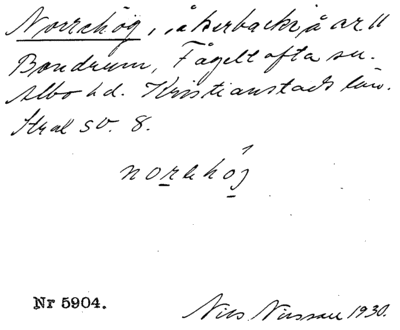 Norrehög, åkerbacke, å ar 11
Bondrum, Fågeltofta sn.
Albo hd. Kristianstads län.
sv. 8.
norehöj
Nr 5904.
Nils Nilsson 1930.